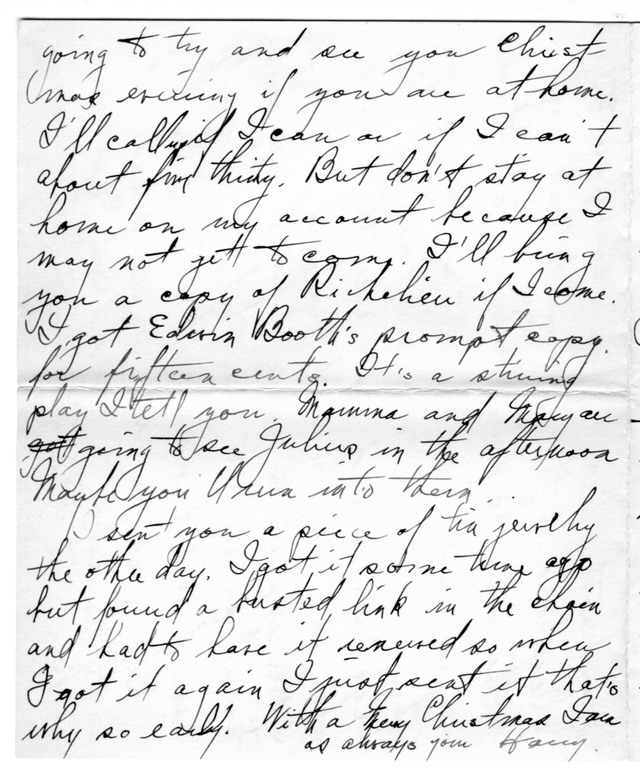 going to try and see you Christ
mas evening if you are at home.
I'll call up if I can or if I can't
about five thirty. But don't stay at
home on my account because I
may not get to come. I'll bring
you a copy of Richelieu if I come.
I got Edwin Booth's prompt copy
for fifteen cents. It's a strong
play I tell you. Mamma and Mary are
going to see Julius in the afternoon
Maybe you'll run into them.
I sent you a piece of tin jewelry
the other day. I got it some time ago
but found a busted link in the chain
and had to have it renewed so when
I got it again I just sent it that's
why so early. With a Merry Christmas I am
as always your Harry.